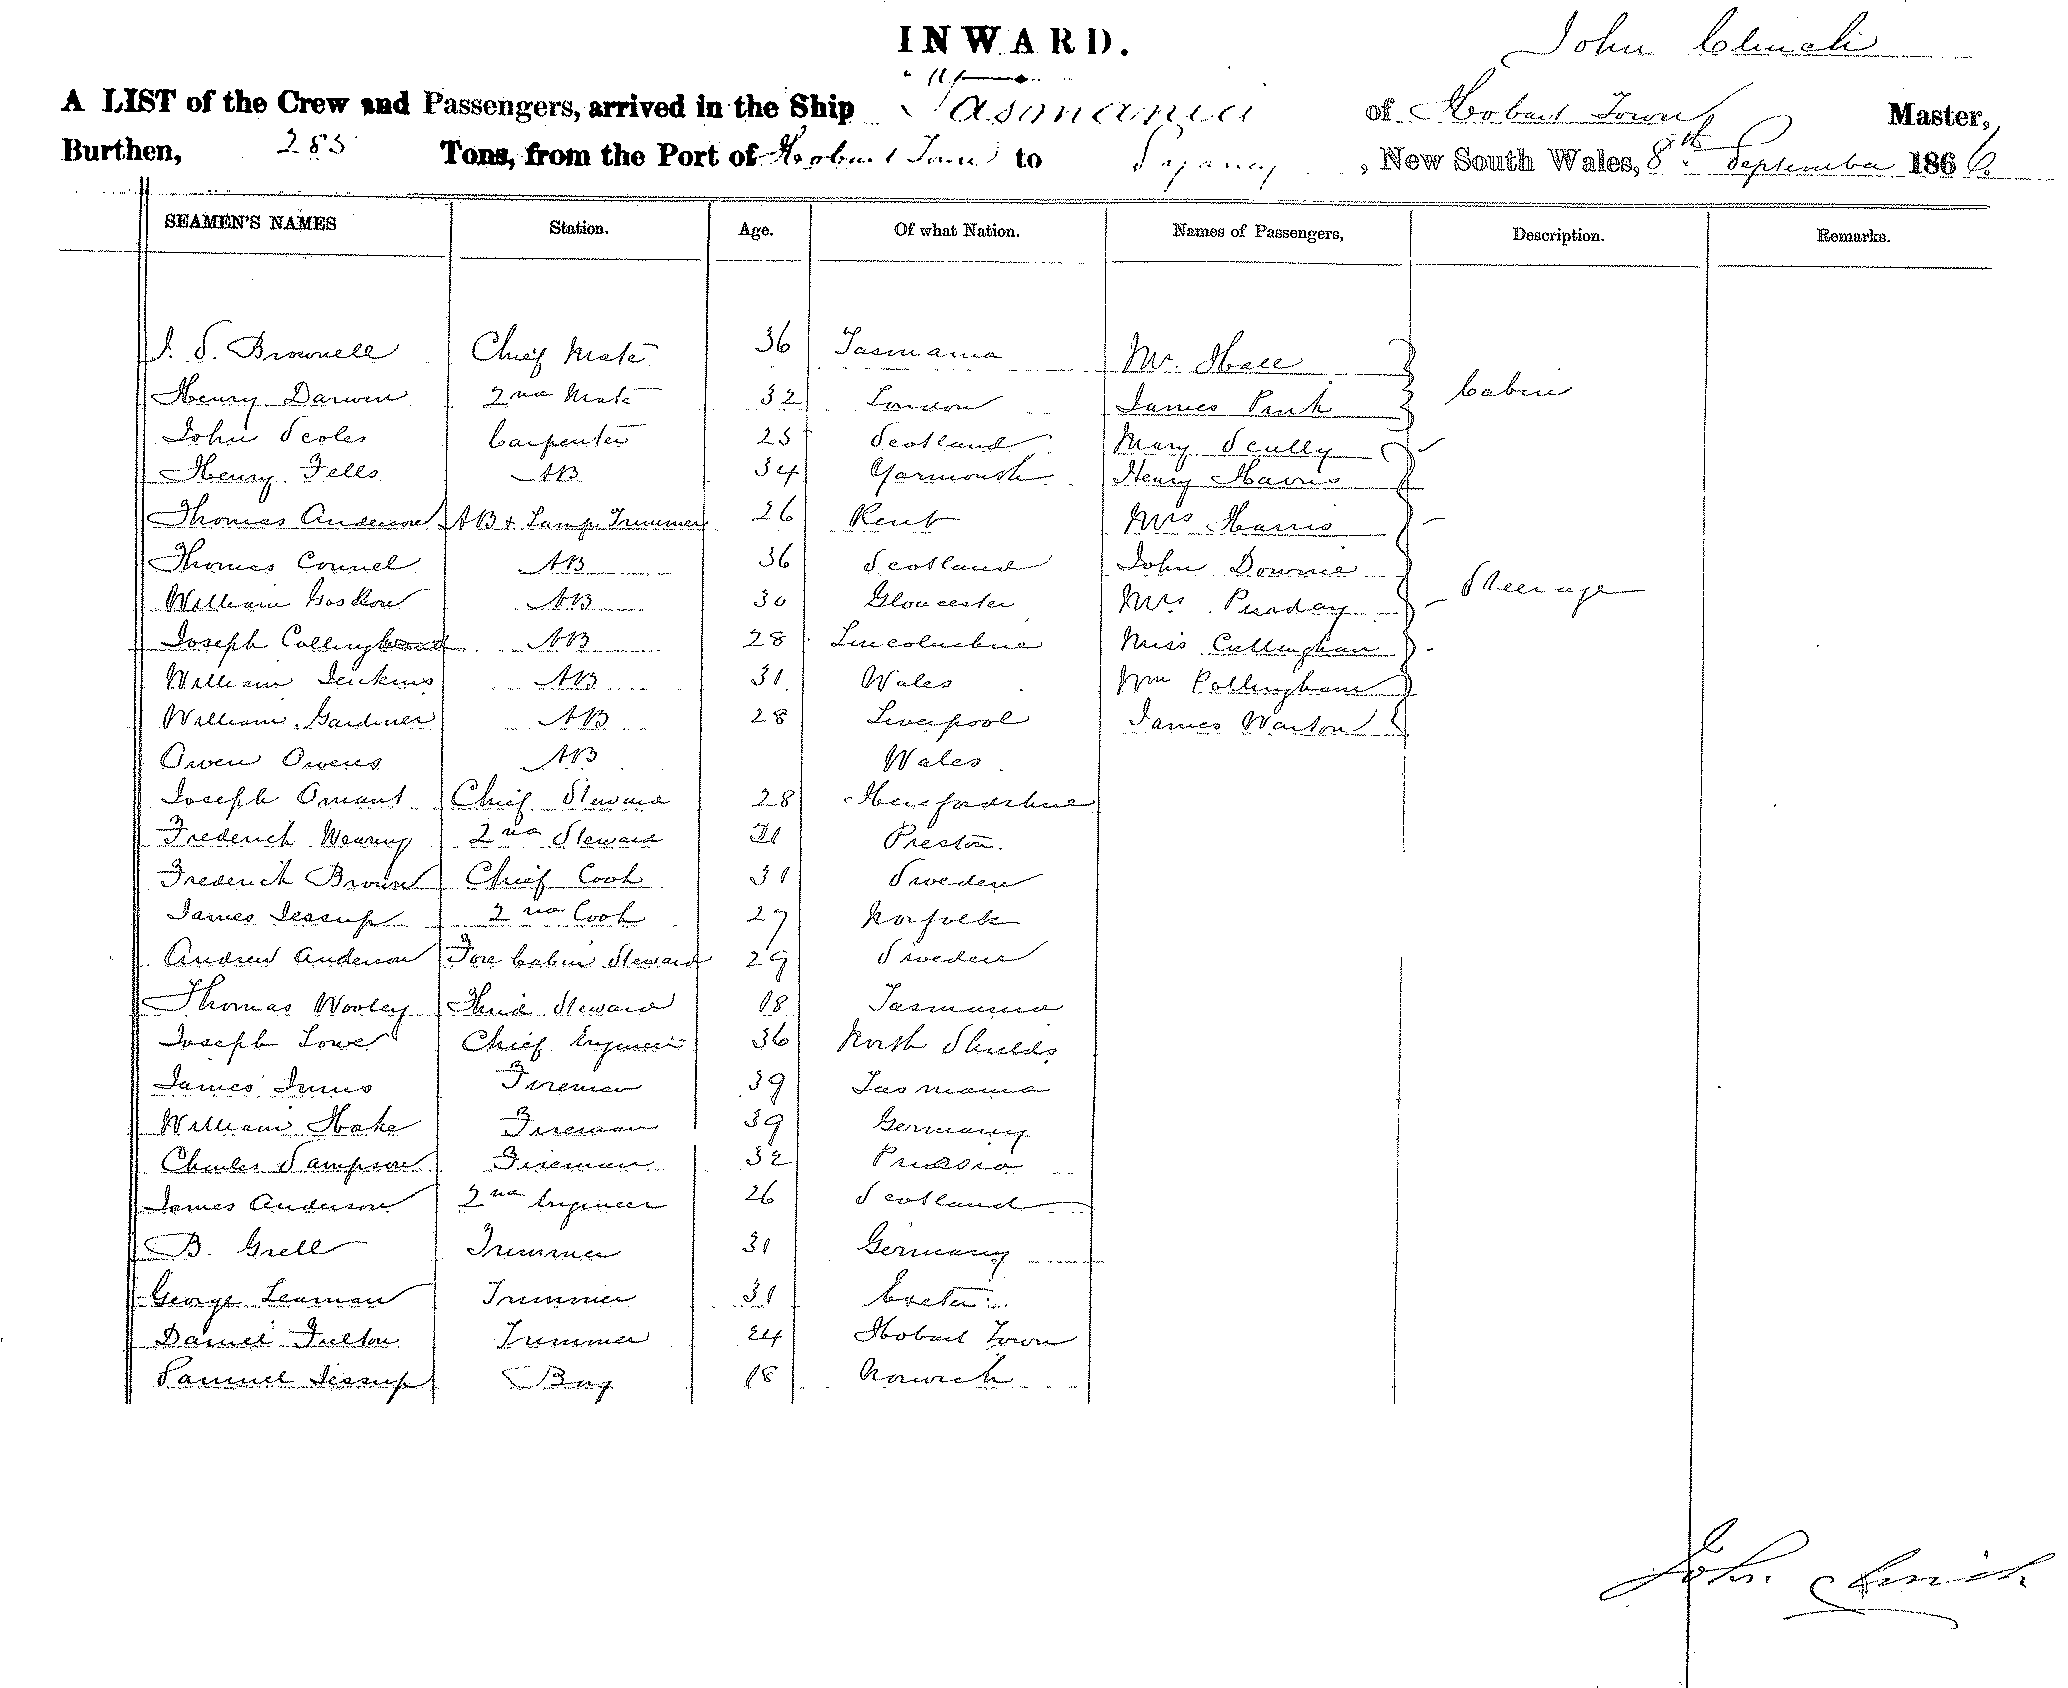 INWARD.
John Clinch
A LIST of the Crew and Passengers, arrived in the Ship Tasmania of Hobart Town Master,
Burthen, 285 Tons, from the Port of Hobart Town to Sydney, New South Wales, 8th September 1866
SEAMEN'S NAMES Station. Age. Of what Nation. Names of Passengers, Description. Remarks.
J. S. Brownell Chief Mate 36 Tasmania Mr. Hall
Cabin
Henry Darwin 2nd Mate 32 London James
John Scoles Carpenter 25 Scotland Mary Scully
Henry Fells AB 34 Yarmouth Henry Harris
Thomas Anderson AB & Lamp Trimmer 26 Kent Mrs Harris
Thomas Connel AB 36 Scotland John Downie
William AB 30 Gloucester Mrs. Purday Steerage
Joseph Collingwood AB 28 Lincolnshire Miss Cullingham
William Jenkins AB 31 Wales Wm Collingham
William Gardiner AB 28 Liverpool James Warton
Owen Owens AB Wales
Joseph Chief Steward 28 Herefordshire
Frederick Wearing 2nd Steward Preston.
Frederick Brown Chief Cook 31 Sweden
James Jessup 2nd Cook 27 Norfolk
Andrew Anderson Fore Cabin Steward 29 Sweden
Thomas Wooley Third Steward 18 Tasmania
Joseph Lowe Chief Engineer 36 North Shields
James Innis Fireman 39 Tasmania
William Hake Fireman 39 Germany
Charles Sampson Fireman 32 Prussia
James Anderson 2nd Engineer 26 Scotland
B. Grell Trimmer 31 Germany
George Leaman Trimmer 31 Exeter
Daniel Fulton Trimmer 24 Hobart Town
Samuel Jessup Boy 18 Norwich
John Clinch